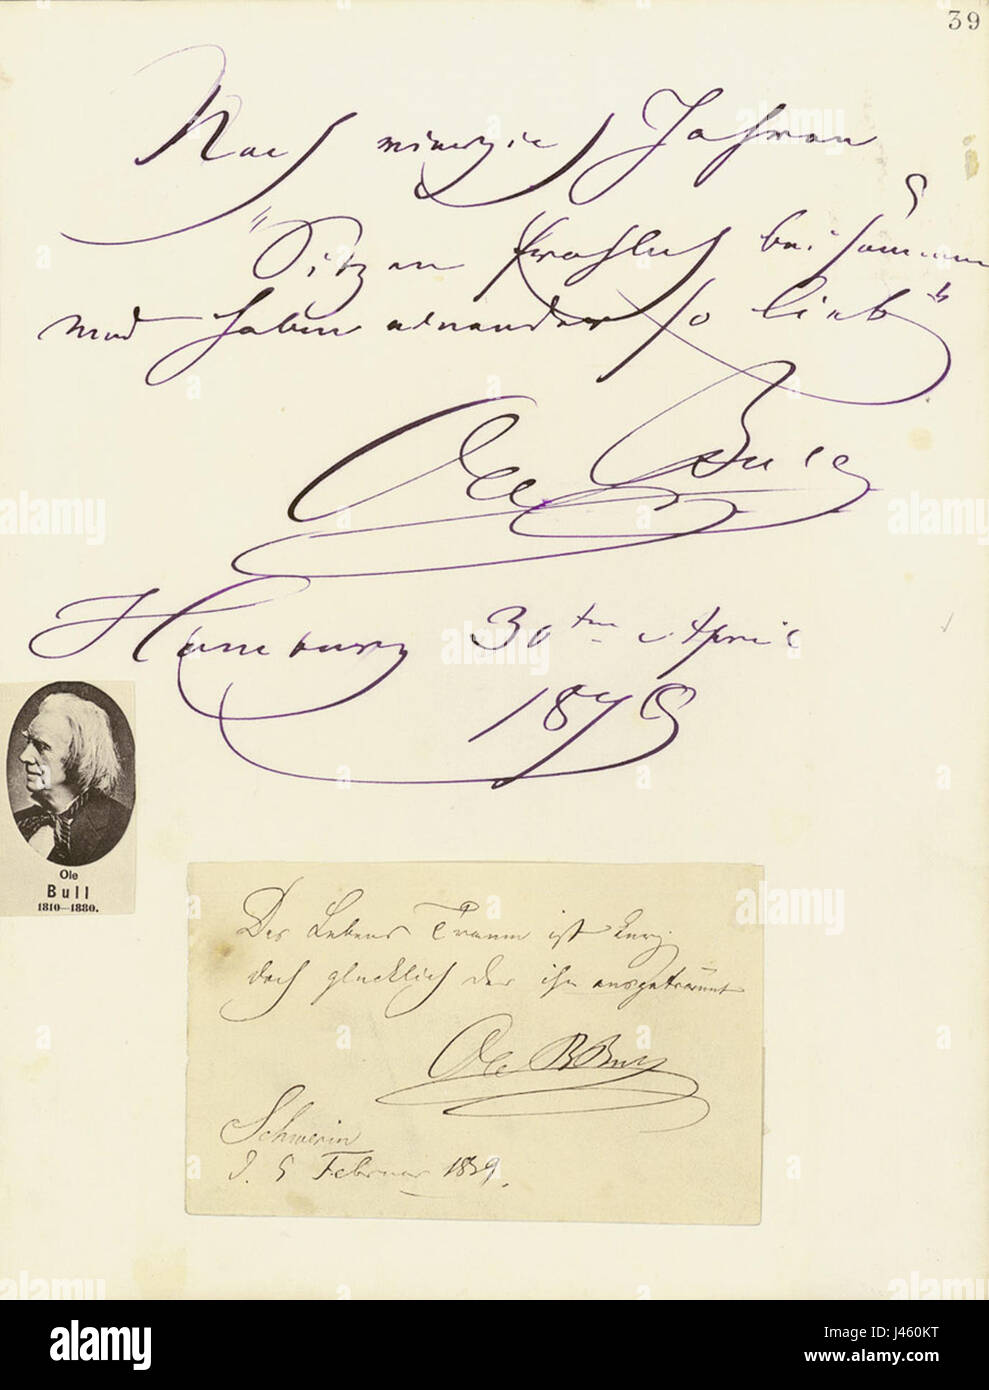 39
Nach vierzig Jahren
"Sitzen fröhlich beisammen
und haben einander so lieb"
Ole Bull
Hamburg 30ten April
1878
Ole
Bull
1810—1880.
Des Lebens Traum ist kurz
doch glücklich der ihn ausgeträumt
Ole B Bull
Schwerin
d. 5 Februar 1839.
alamy stock photo
J460KT
www.alamy.com